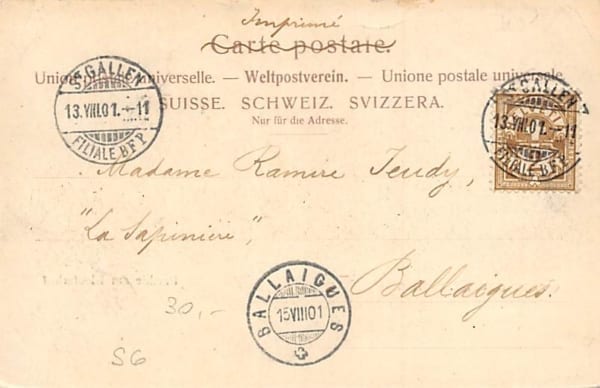 Imprimé
Carte postale.
Union postale universelle. — Weltpostverein. — Unione postale universale
SUISSE. SCHWEIZ. SVIZZERA.
Nur für die Adresse.
ST GALLEN
13.VIII.01.-11
FILIALE BF.P.
ST GALLEN
13.VIII.01.-11
FILIALE BF.P.
Madame Ramire Jeudy,
"La Sapinière",
Ballaigues.
BALLAIGUES
15 VIII 01
30,-
S6